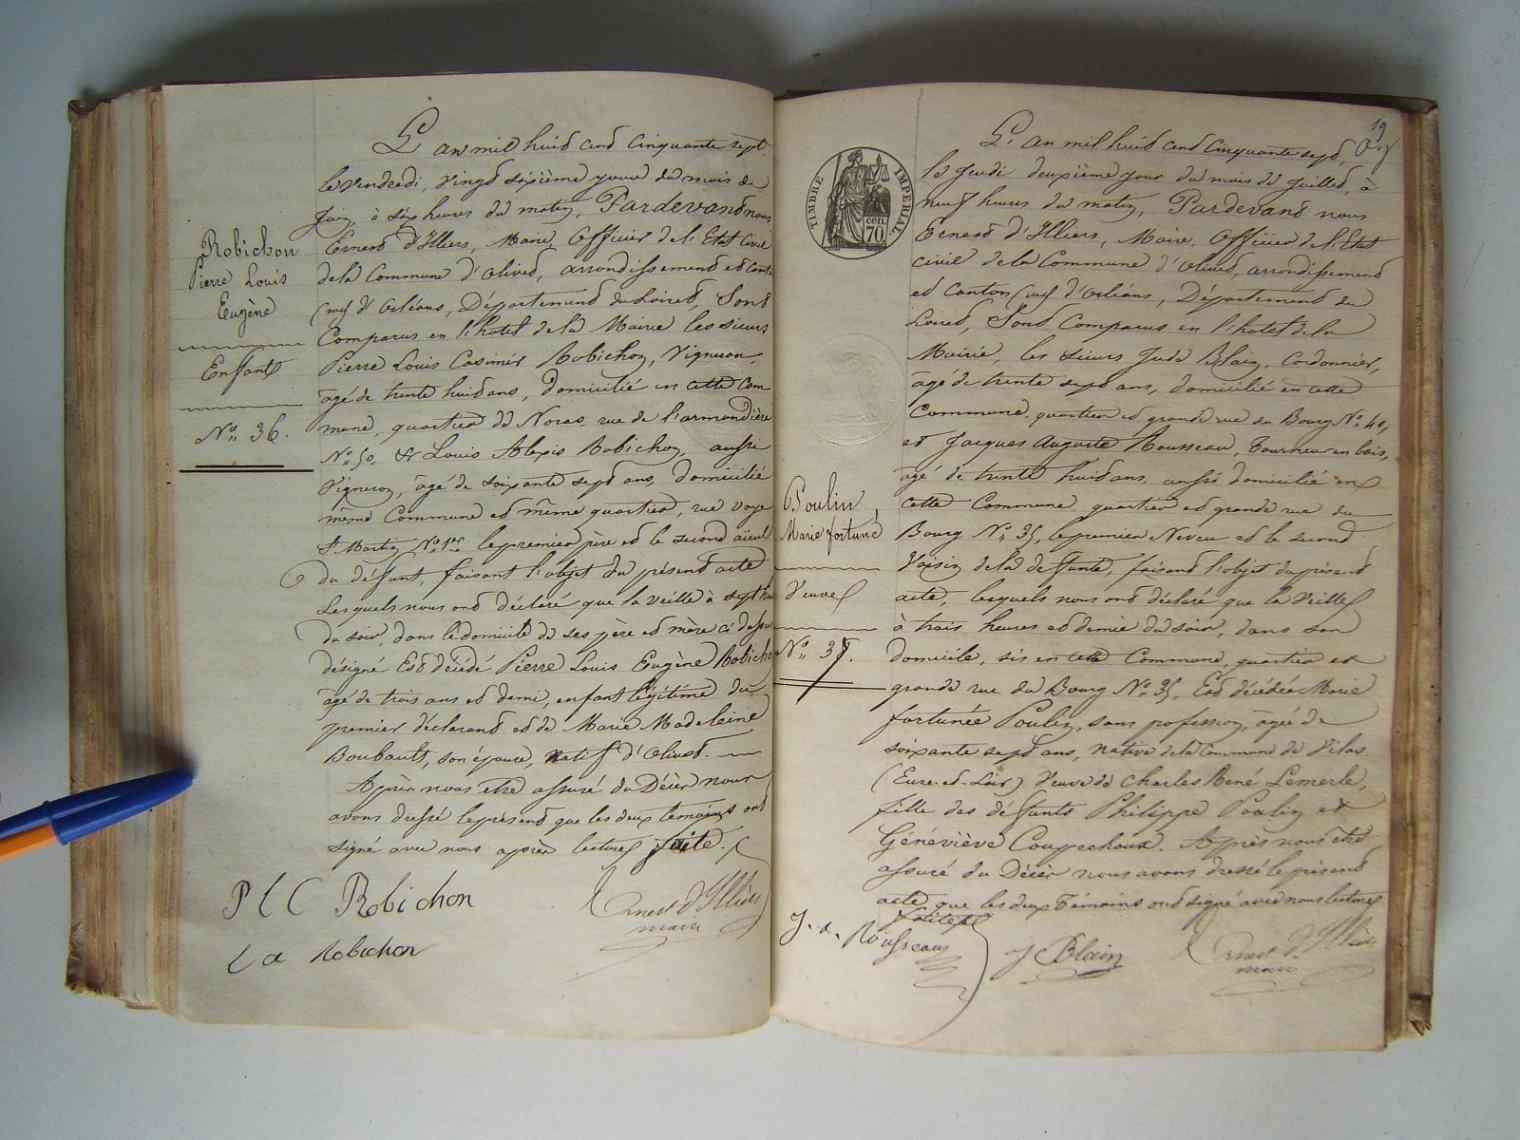 Robichon
Pierre Louis
Eugène
Enfant
No. 36.
L'an mil huit cent cinquante sept
le vendredi, vingt sixième jour du mois de
Juin, à six heures du matin, Pardevant nous
Ernest d'Illiers, Maire, Officier de l'Etat Civil
de la Commune d'Olivet, arrondissement et Canton
(sud) d'Orléans, Département du Loiret, Sont
Comparus en l'hotel de la Mairie les sieurs
Pierre Louis Casimir Robichon, Vigneron,
âgé de trente huit ans, domicilié en cette Com
mune, quartier de Noras rue de l'armandière
No. 50, & Louis Alexis Robichon, aussi
Vigneron, âgé de soixante sept ans, domicilié
même Commune et même quartier, rue
St. Martin No. 1er. le premier père et le second aïeul
du défunt, faisant l'objet du présent acte
Lesquels nous ont déclaré que la veille à sept heures
du soir, dans le domicile de ses père et mère ci dessus
désigné Est décédé Pierre Louis Eugène Robichon
âgé de trois ans et demi, enfant légitime du
premier déclarant et de Marie Madeleine
Boubault, son épouse, natif d'Olivet.
Après nous être assuré du Décès nous
avons dressé le présent que les deux témoins ont
signé avec nous après lecture faite.
P L C Robichon
Ernest d'Illiers
maire
L A Robichon
19
TIMBRE IMPERIAL
CEN.
70
Poulin,
Marie fortuné
Veuve
No. 37.
L'an mil huit cent cinquante sept,
le Jeudi deuxième jour du mois de Juillet, à
neuf heures du matin, Pardevant nous
Ernest d'Illiers, Maire, Officier de l'Etat
civil de la Commune d'Olivet, arrondissement
et Canton (sud) d'Orléans, Département du
Loiret, Sont Comparus en l'hotel de la
Mairie, les sieurs Jude Blain, Cordonnier,
âgé de trente sept ans, domicilié en cette
Commune, quartier et grande rue du Bourg No. 40,
et Jacques Auguste Rousseau, Tourneur en bois,
âgé de trente huit ans, aussi domicilié en
cette Commune quartier et grande rue du
Bourg No. 35, le premier Neveu et le second
Voisin de la défunte, faisant l'objet du présent
acte, lesquels nous ont déclaré que la Veille
à trois heures et demie du soir, dans son
domicile, sis en cette Commune, quartier et
grande rue du Bourg No. 35. Est décédée Marie
fortunée Poulin, sans profession, âgée de
soixante sept ans, native de la Commune de
(Eure-et-Loir) Veuve de Charles René Lemerle,
fille des défunts Philippe Poulin et
Géneviève Coupechoux. Après nous être
assuré du Décès nous avons dressé le présent
acte que les deux Témoins ont signé avec nous lecture
faite.
J. A. Rousseau
J Blain
Ernest d'Illiers
maire